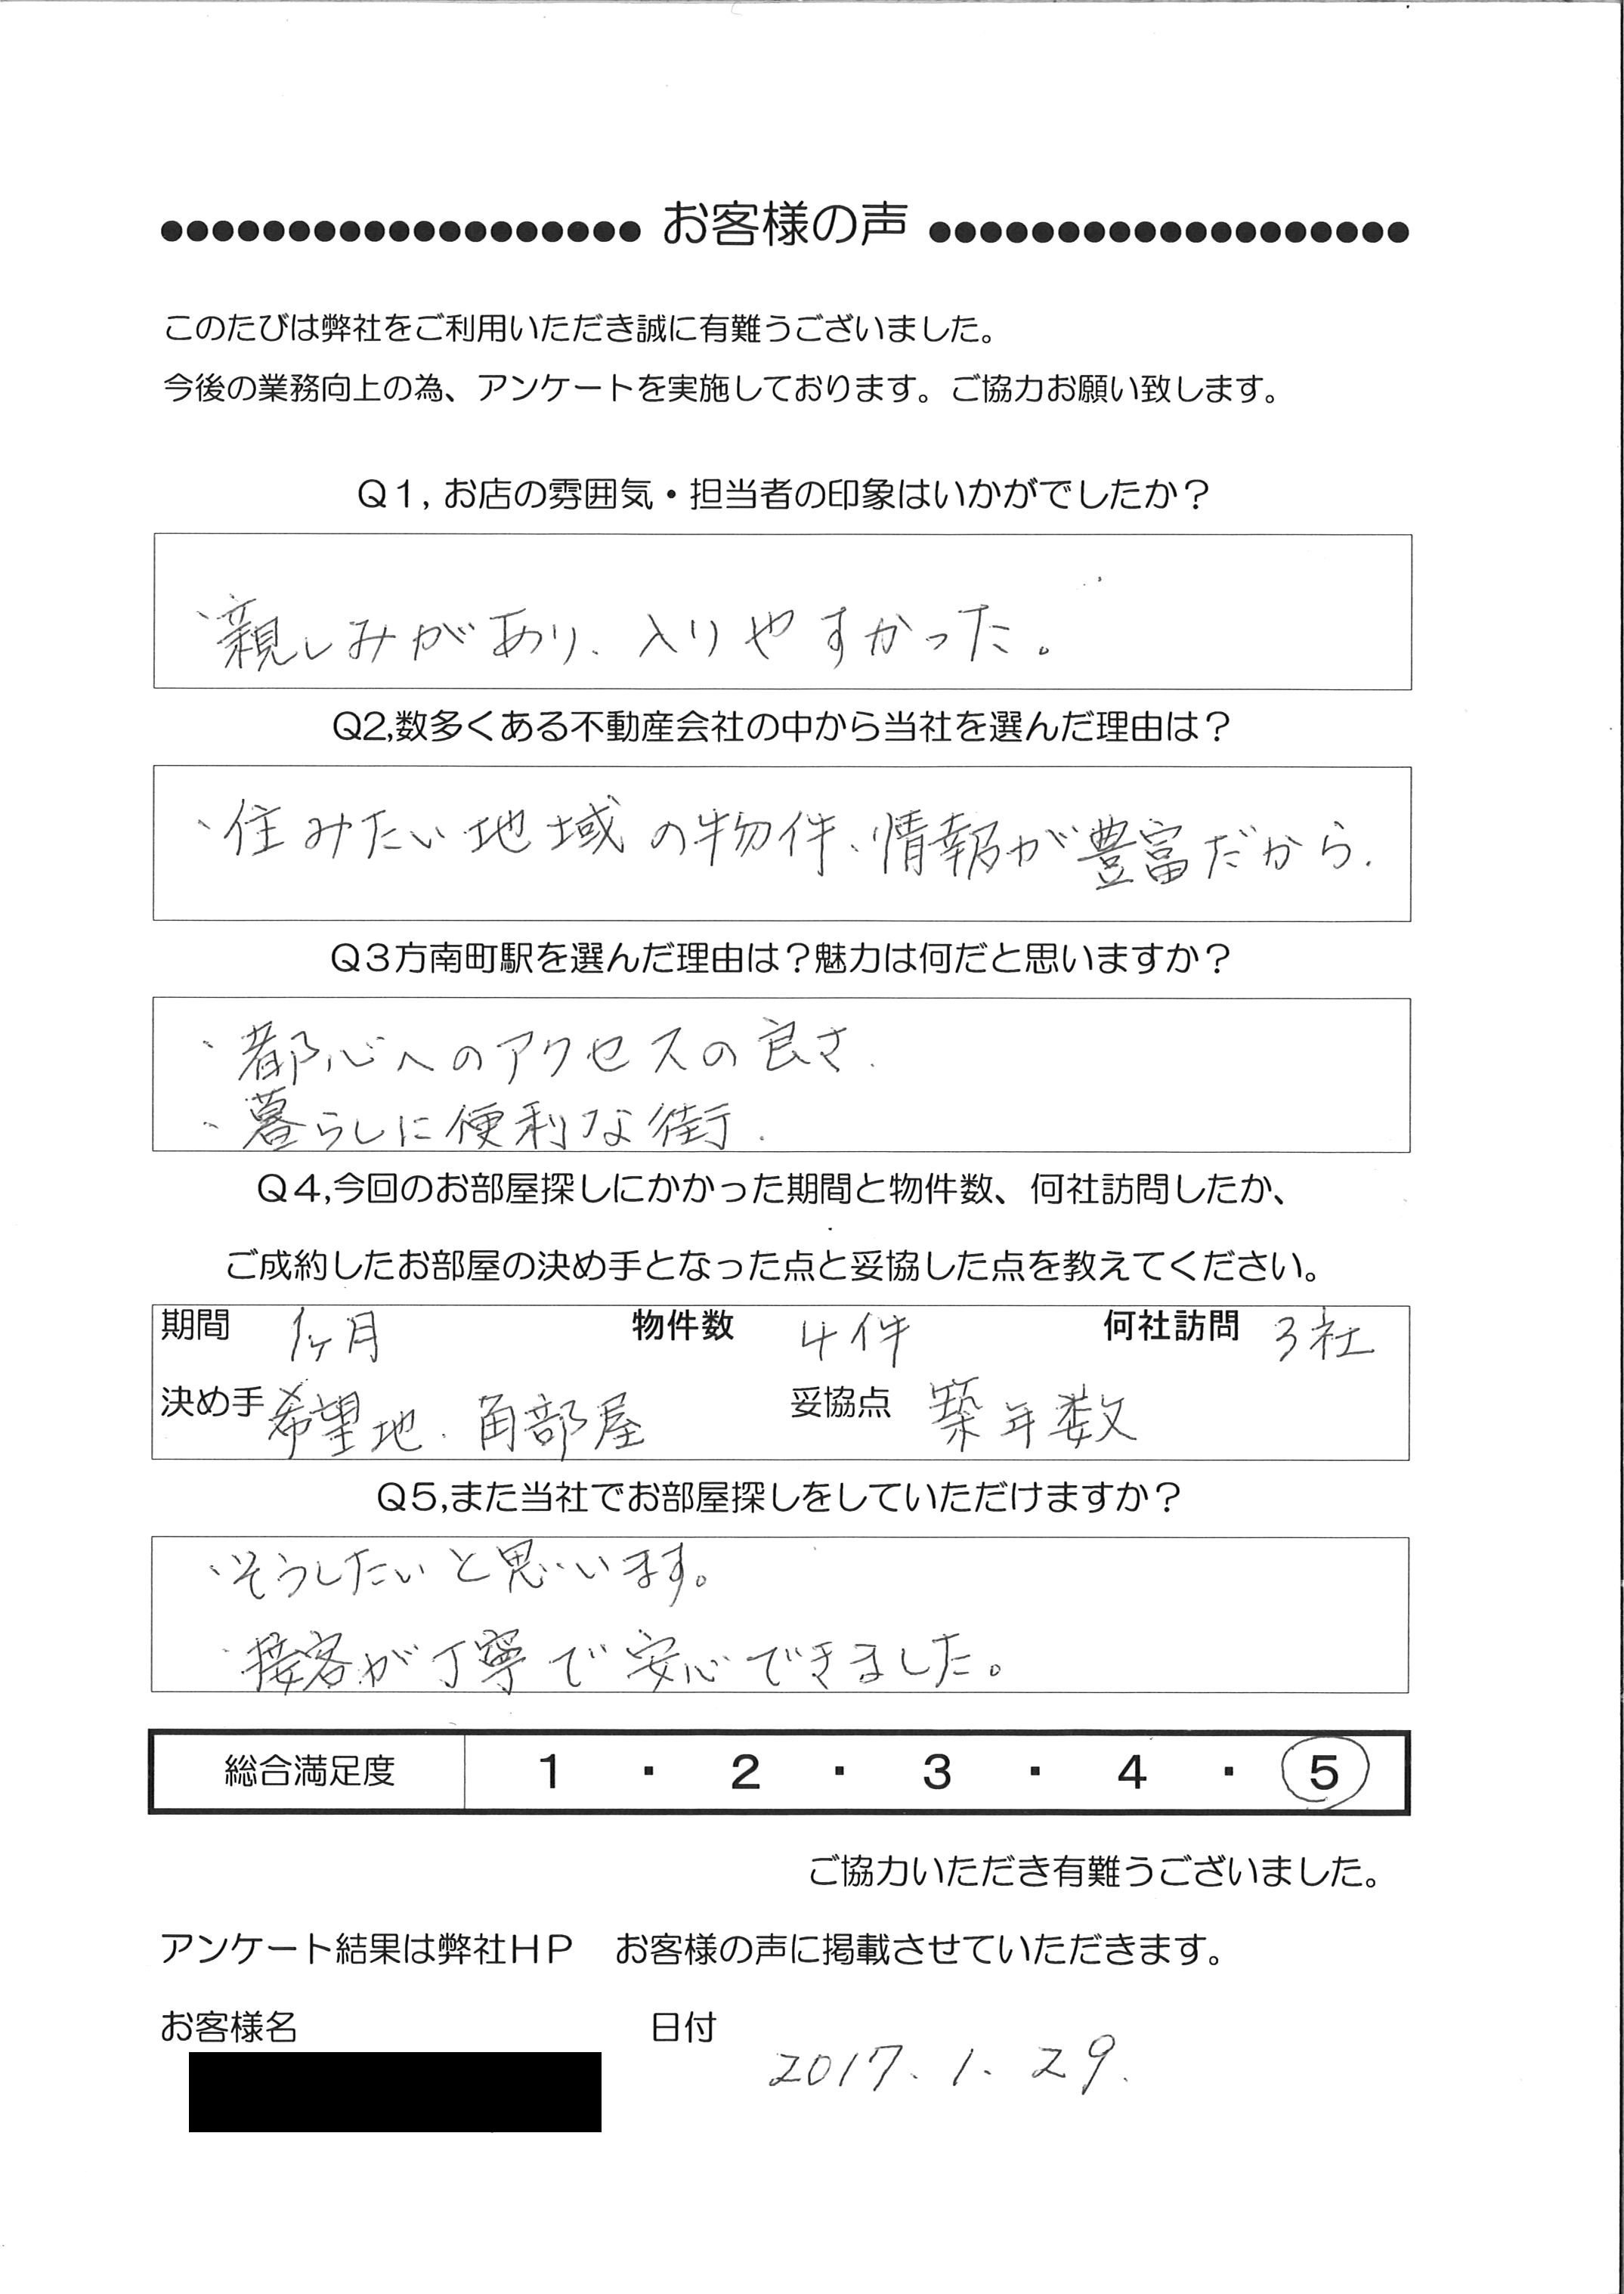 ●●●●●●●●●●●●●●●●●●● お客様の声 ●●●●●●●●●●●●●●●●●●●
このたびは弊社をご利用いただき誠に有難うございました。
今後の業務向上の為、アンケートを実施しております。ご協力お願い致します。
Q1,お店の雰囲気・担当者の印象はいかがでしたか？
・親しみがあり、入りやすかった。
Q2,数多くある不動産会社の中から当社を選んだ理由は？
・住みたい地域の物件、情報が豊富だから.
Q3方南町駅を選んだ理由は？魅力は何だと思いますか？
・都心へのアクセスの良さ.
・暮らしに便利な街.
Q4,今回のお部屋探しにかかった期間と物件数、何社訪問したか、
ご成約したお部屋の決め手となった点と妥協した点を教えてください。
期間 1ヶ月 物件数 4件 何社訪問 3社
決め手 希望地.角部屋 妥協点 築年数
Q5,また当社でお部屋探しをしていただけますか？
・そうしたいと思います。
・接客が丁寧で安心できました。
総合満足度 1 ・ 2 ・ 3 ・ 4 ・ 5
ご協力いただき有難うございました。
アンケート結果は弊社HP お客様の声に掲載させていただきます。
お客様名 日付
2017.1.29.